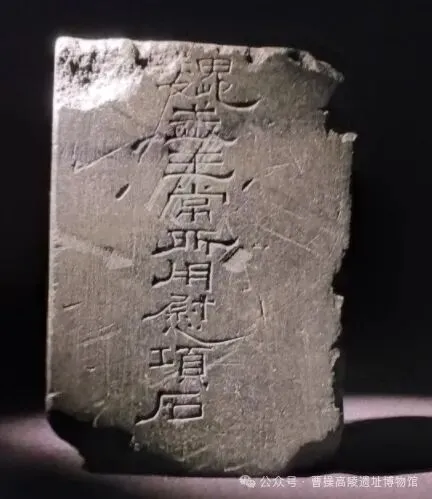 魏武王常所用慰項石
公众号·曹操高陵遗址博物馆